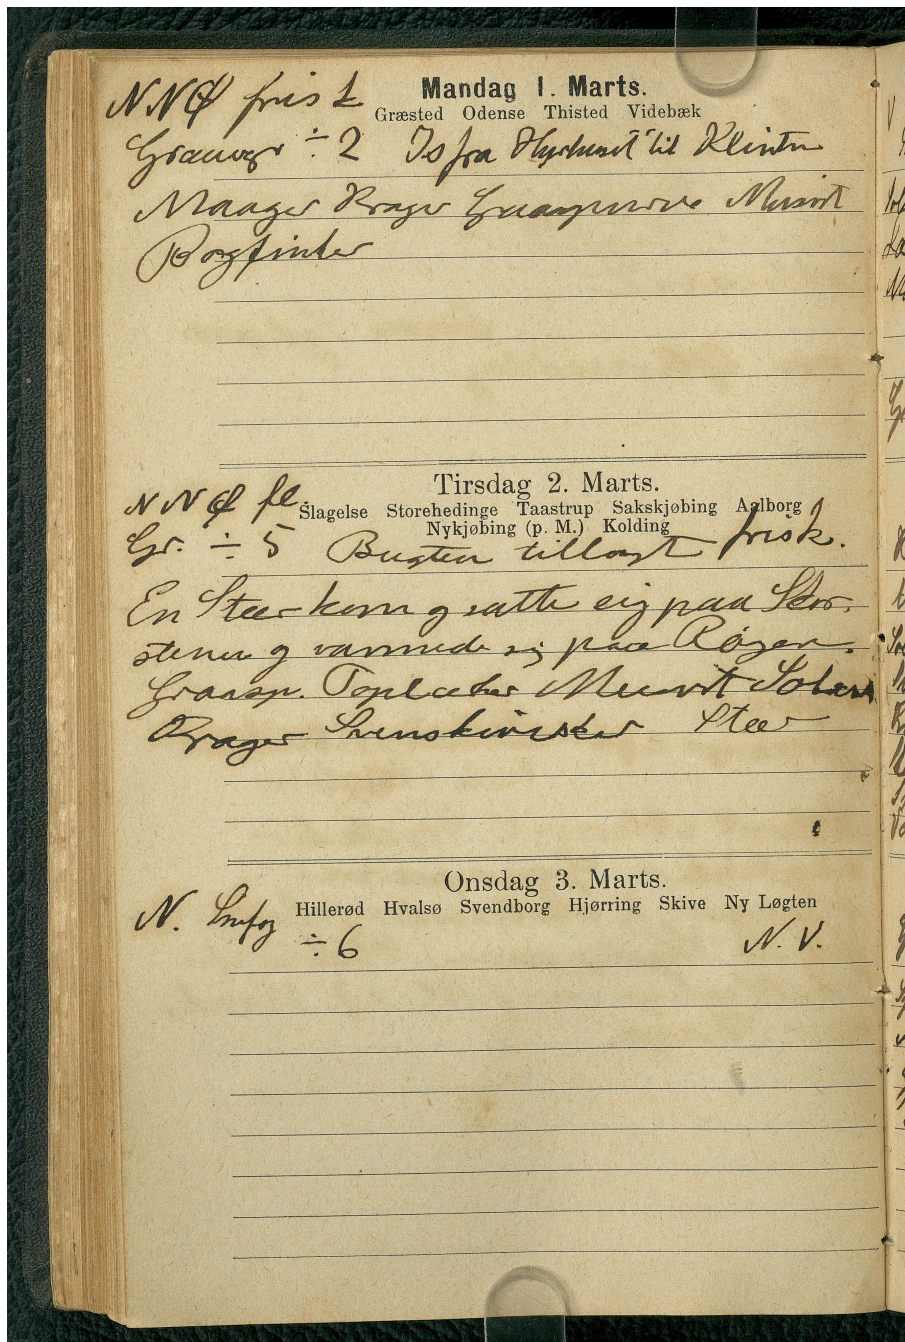 Mandag 1. Marts.
NNØ frisk
Græsted Odense Thisted Videbæk
Graavejr ÷ 2 Is fra Hyrhuset til Klinten
Maager Krager Graaspurve Musvit
Bogfinker
Tirsdag 2. Marts.
NNØ fl.
Slagelse Storehedinge Taastrup Sakskjøbing Aalborg
Nykjøbing (p. M.) Kolding
Gr. ÷ 5 Bugten tillagt frisk.
En Stær kom og satte sig paa Skor-
stenen og varmede sig paa Røgen.
Graasp. Toplærker Musvit
Krager Svenskirisker Stær
Onsdag 3. Marts.
N. Snefog
Hillerød Hvalsø Svendborg Hjørring Skive Ny Løgten
÷ 6 N. V.